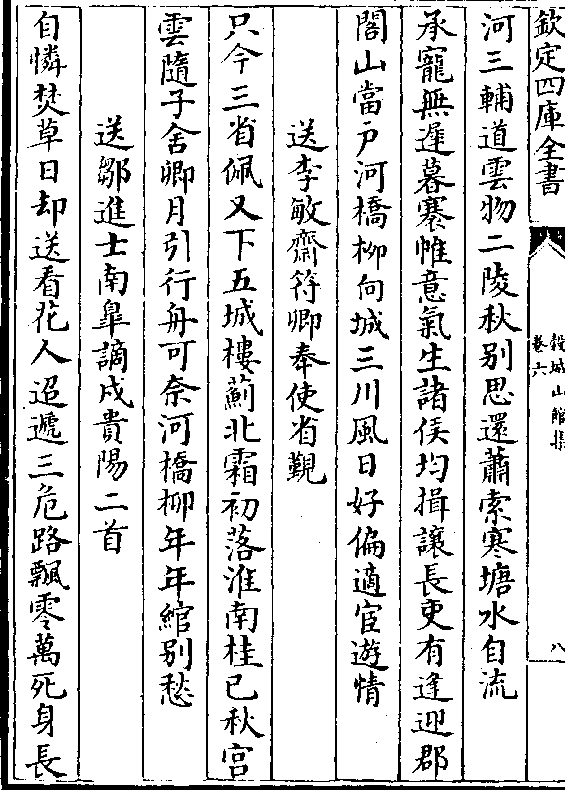 欽定四庫全書
穀城山館集
卷六
八
河三輔道雲物二陵秋别思還蕭索寒塘水自流
承寵無遲暮褰帷意氣生諸侯均揖讓長吏有逢迎郡
閣山當户河橋柳向城三川風日好偏適宦遊情
送李敏齋符卿奉使省覲
只今三省佩又下五城樓薊北霜初落淮南桂已秋宫
雲隨子舍卿月引行舟可奈河橋柳年年綰别愁
送鄒進士南臯謫戍貴陽二首
自憐焚草日却送看花人迢遞三危路飄零萬死身長